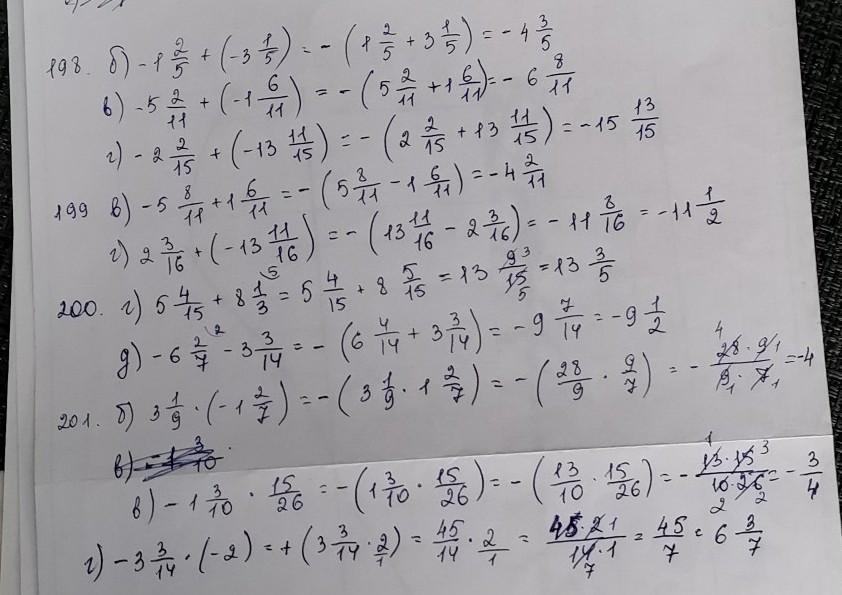 198. б) -1 2/5 + (-3 1/5) = -(1 2/5 + 3 1/5) = -4 3/5
в) -5 2/11 + (-1 6/11) = -(5 2/11 + 1 6/11) = -6 8/11
г) -2 2/15 + (-13 11/15) = -(2 2/15 + 13 11/15) = -15 13/15
199 в) -5 8/11 + 1 6/11 = -(5 8/11 - 1 6/11) = -4 2/11
г) 2 3/16 + (-13 11/16) = -(13 11/16 - 2 3/16) = -11 8/16 = -11 1/2
200. г) 5 4/15 + 8 1/3 = 5 4/15 + 8 5/15 = 13 9/15 = 13 3/5
д) -6 2/7 - 3 3/14 = -(6 4/14 + 3 3/14) = -9 7/14 = -9 1/2
201. б) 3 1/9 · (-1 2/7) = -(3 1/9 · 1 2/7) = -(28/9 · 9/7) = -28·9/9·7 = -4
в) -1 3/10 · 15/26 = -(1 3/10 · 15/26) = -(13/10 · 15/26) = -13·15/10·26 = -3/4
г) -3 3/14 · (-2) = +(3 3/14 · 2/1) = 45/14 · 2/1 = 45·2/14·1 = 45/7 = 6 3/7